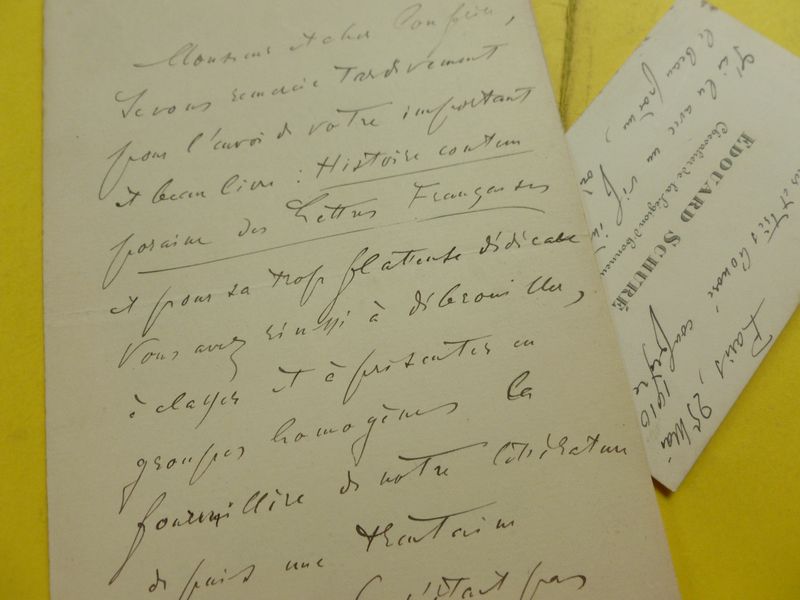 Monsieur et cher Confrère,
Je vous remercie tardivement
pour l'envoi de votre important
et beau livre : Histoire contem
poraine des Lettres Françaises
et pour sa trop flatteuse dédicace
Vous avez réussi à débrouiller,
à classer et à présenter en
groupes homogènes la
fourmillière de notre littérature
depuis une trentaine
n'était pas
EDOUARD SCHURÉ
Chevalier de la Légion d'Honneur
J'ai lu avec un vif
le beau
et très honoré confrère
Paris, 25 Mai
1910